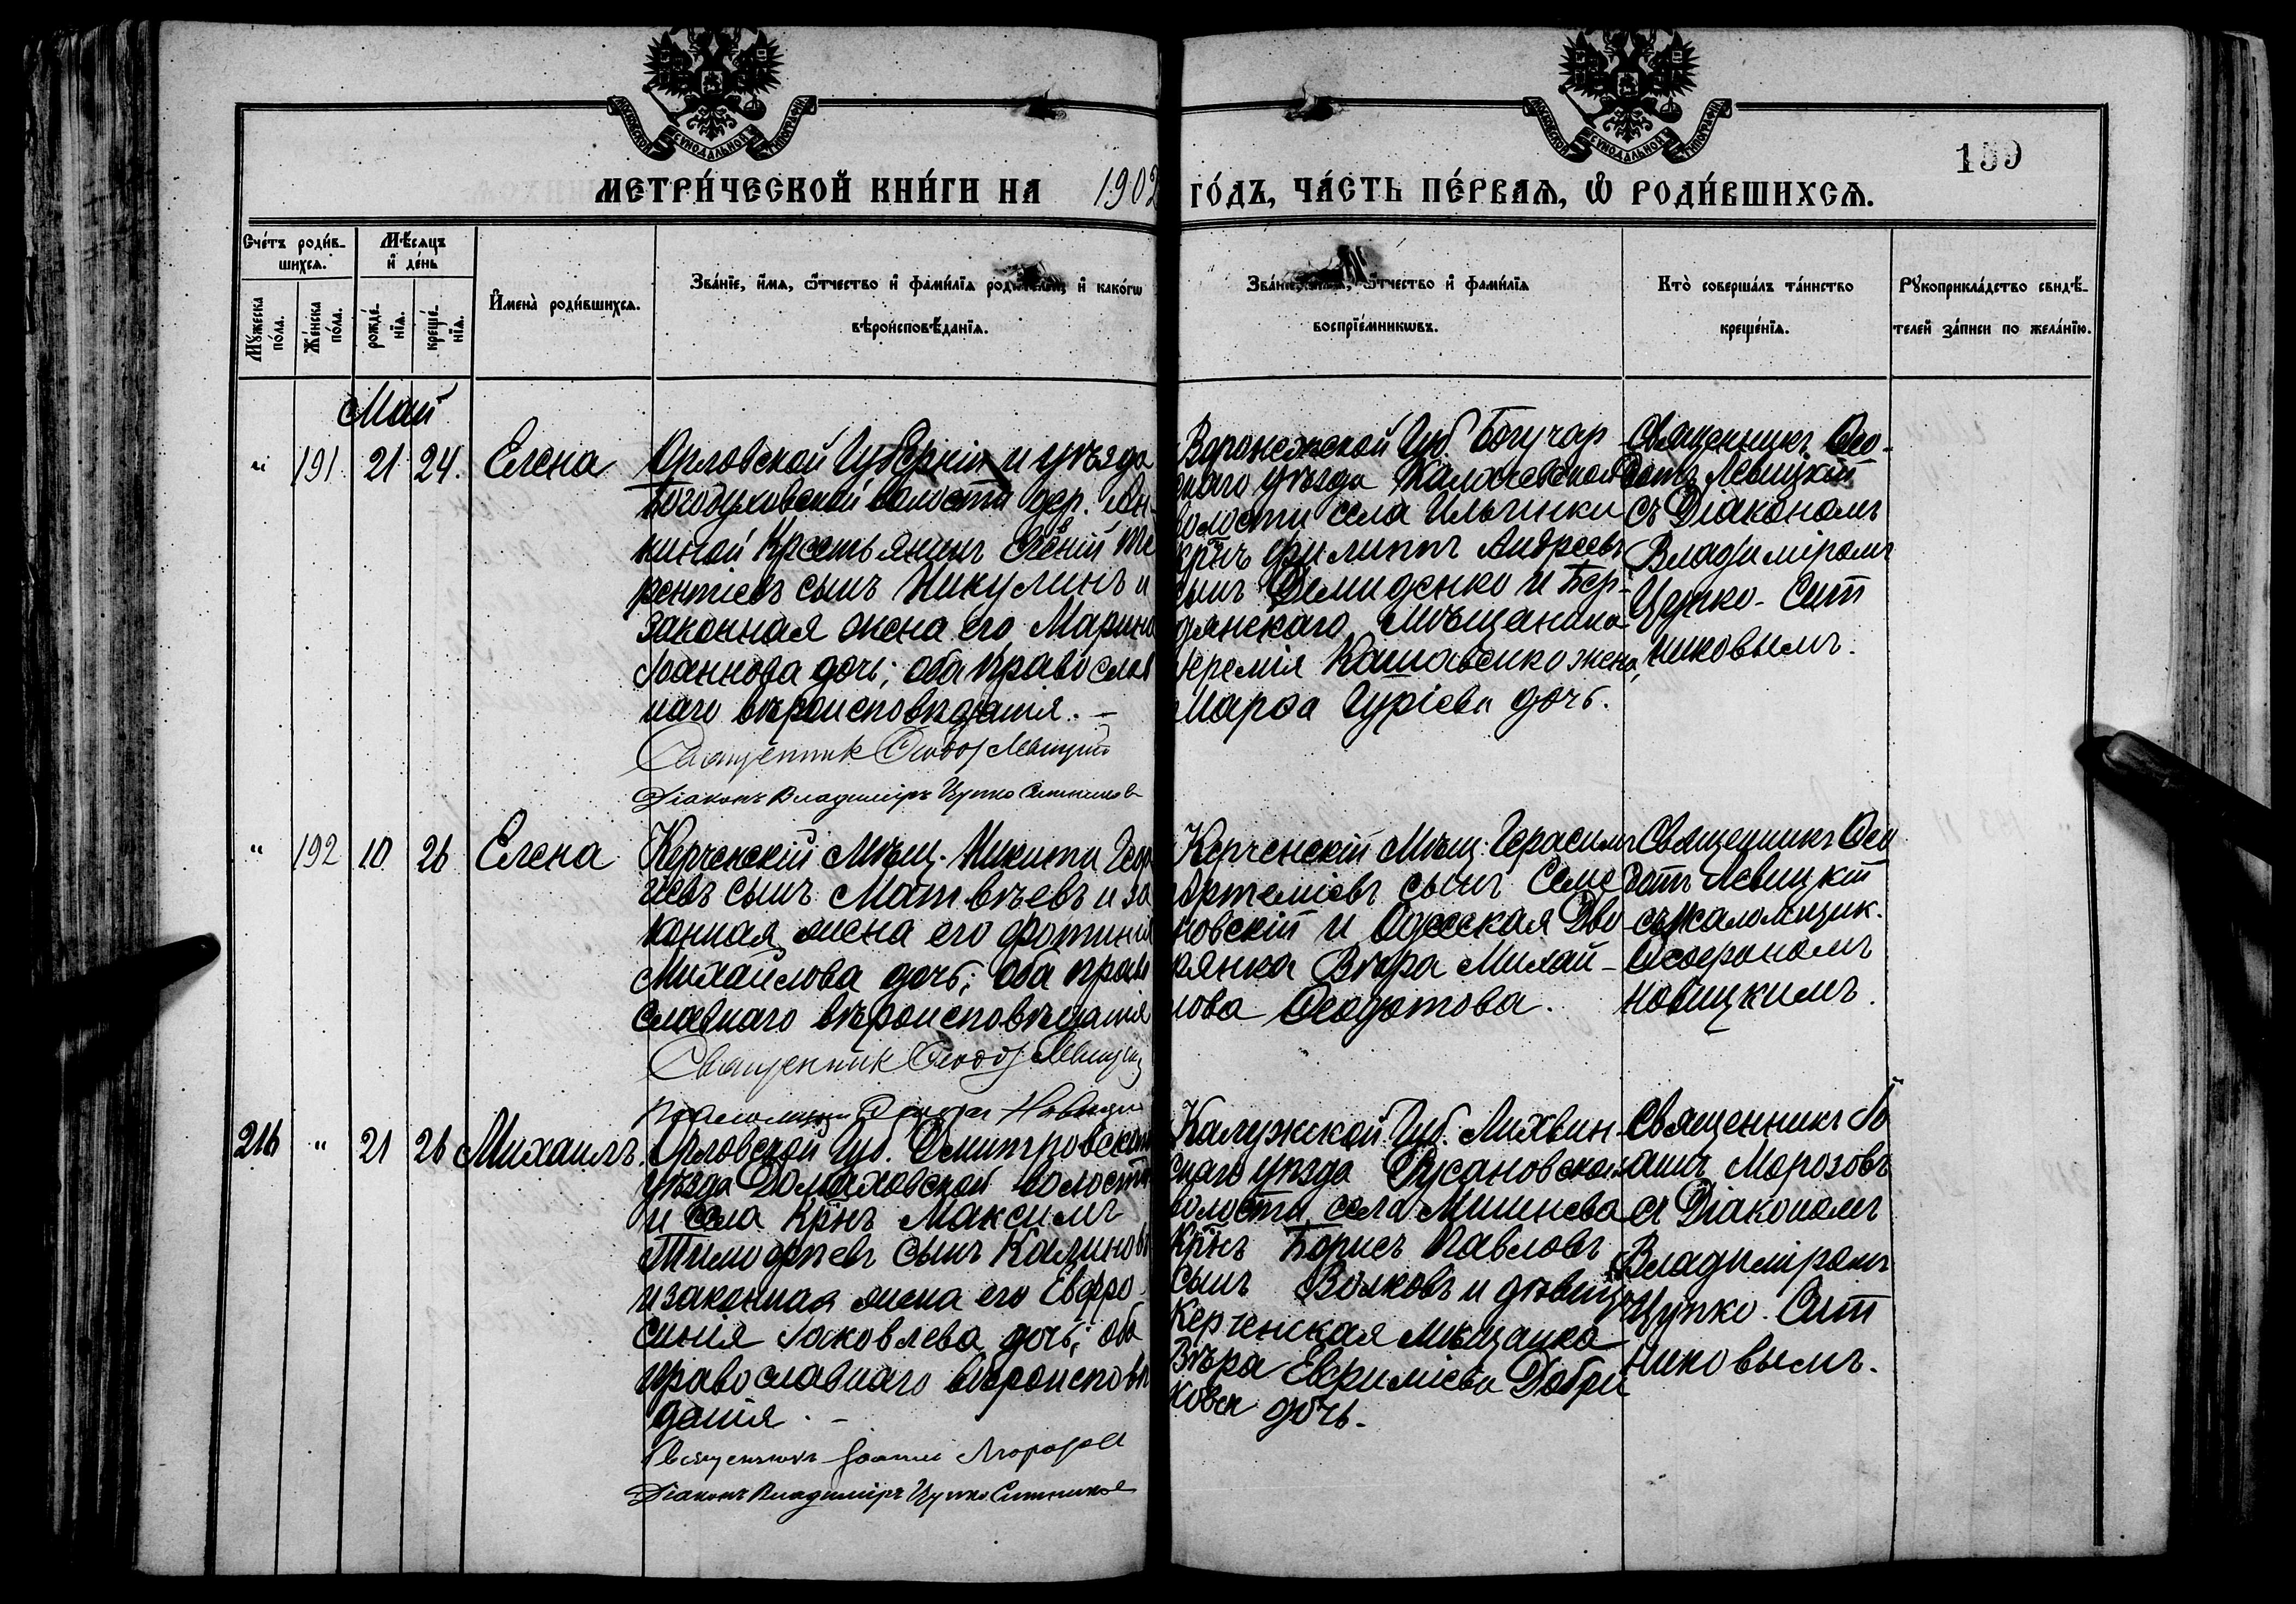 МОСКОВСКОЙ СѴНОДАЛЬНОЙ ТИПОГРАФІИ
МОСКОВСКОЙ СѴНОДАЛЬНОЙ ТИПОГРАФІИ
159
МЕТРИ́ЧЕСКОЙ КНИ́ГИ НА 1902 ГО́ДЪ, ЧА́СТЬ ПЕ́РВАѦ, Ѡ҆ РОДИ́ВШИХСѦ.
Сче́тъ роди́в-
шихсѧ.
Мѣ́сѧцъ
и҆ де́нь
Мꙋ́жеска
по́ла.
Же́нска
по́ла.
рожде́-
нїѧ.
креще́-
нїѧ.
И҆мена̀ роди́вшихсѧ.
Зва́нїе, и҆́мѧ, ѻ҆́тчество и҆ фами́лїѧ роди́телей, и҆ како́гѡ
вѣроисповѣ́данїѧ.
Зва́нїе, и҆́мѧ, ѻ҆́тчество и҆ фами́лїѧ
воспрїе́мникѡвъ.
Кто̀ соверша́лъ та́инство
креще́нїѧ.
Рꙋкоприкла́дство свидѣ́-
телей за́писи по жела́нїю.
Май
" 191 21 24. Елена
Орловской Губерніи и уѣзда
Богодуховской волости дер.
киной Крестьянинъ Те
рентіевъ сынъ Никулинъ и
законная жена его Марина
Іоаннова дочь; оба православ
наго вѣроисповѣданія. –
Священник Феодот Левицкий
Діаконъ Владимиръ Цупко Ситников
Воронежской Губ. Богучар
скаго уѣзда Калачевской
волости села Ильинки
крнъ Филиппъ Андреевъ
сынъ Демиденко и Бер-
дянскаго мѣщанина
Іеремія жена,
Марѳа Гуріева дочь.
Священникъ Ѳео-
дотъ Левицкій
съ Діакономъ
Владиміромъ
Цупко-Сит
никовымъ.
" 192 10 26 Елена
Керченскій Мѣщ. Никита Геор
гіевъ сынъ Матвѣевъ и за
конная жена его Фотинія
Михайлова дочь; оба право
славнаго вѣроисповѣданія
Священник Феодот Левицкий
Керченскій Мѣщ. Герасимъ
Артеміевъ сынъ Семе
новскій и Одесская Дво
рянка Вѣра Михай-
лова Ѳеодотова.
Священникъ Ѳео
дотъ Левицкій
съ псаломщик.
Ѳеофаномъ
Новицкимъ.
216 " 21 26 Михаилъ.
Орловской Губ. Дмитровскаго
уѣзда волости
и села Крнъ Максимъ
Тимофѣевъ сынъ Калиновъ
и законная жена его Евфро-
синія Іаковлева дочь; оба
православнаго вѣроисповѣ
данія. –
Священникъ Іоанн Морозов
Діаконъ Владимиръ Цупко Ситников
Калужской Губ. Лихвин-
скаго уѣзда Русановской
волости, села Мишнева
Крнъ Борисъ Павловъ
сынъ Волковъ и дѣвица
Керченская мѣщанка
Вѣра Евфиміева Добри
кова дочь.
Священникъ Іо
аннъ Морозовъ
съ Діакономъ
Владиміромъ
Цупко-Сит
никовымъ.